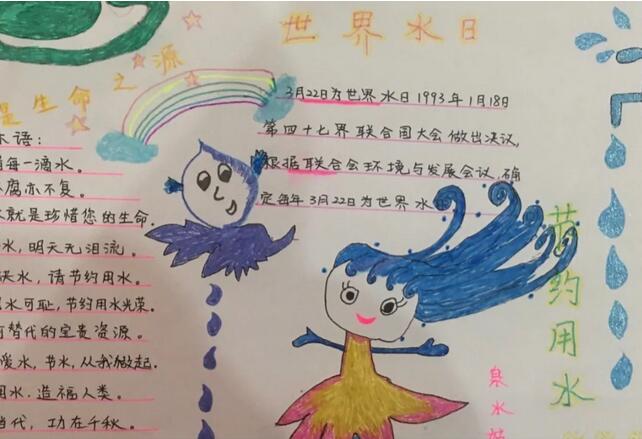 世界水日
是生命之源
3月22日为世界水日1993年1月18日
第四十七界联合国大会做出决议,
根据联合会环境与发展会议,确
定每年3月22日为世界水
语：
每一滴水。
腐亦不复。
水就是珍惜您的生命.
水,明天无泪流。
水,请节约用水。
水可耻,节约用水光荣。
可替代的宝贵资源。
爱水,节水,从我做起.
用水.造福人类。
当代,功在千秋。
节约用水
泉水